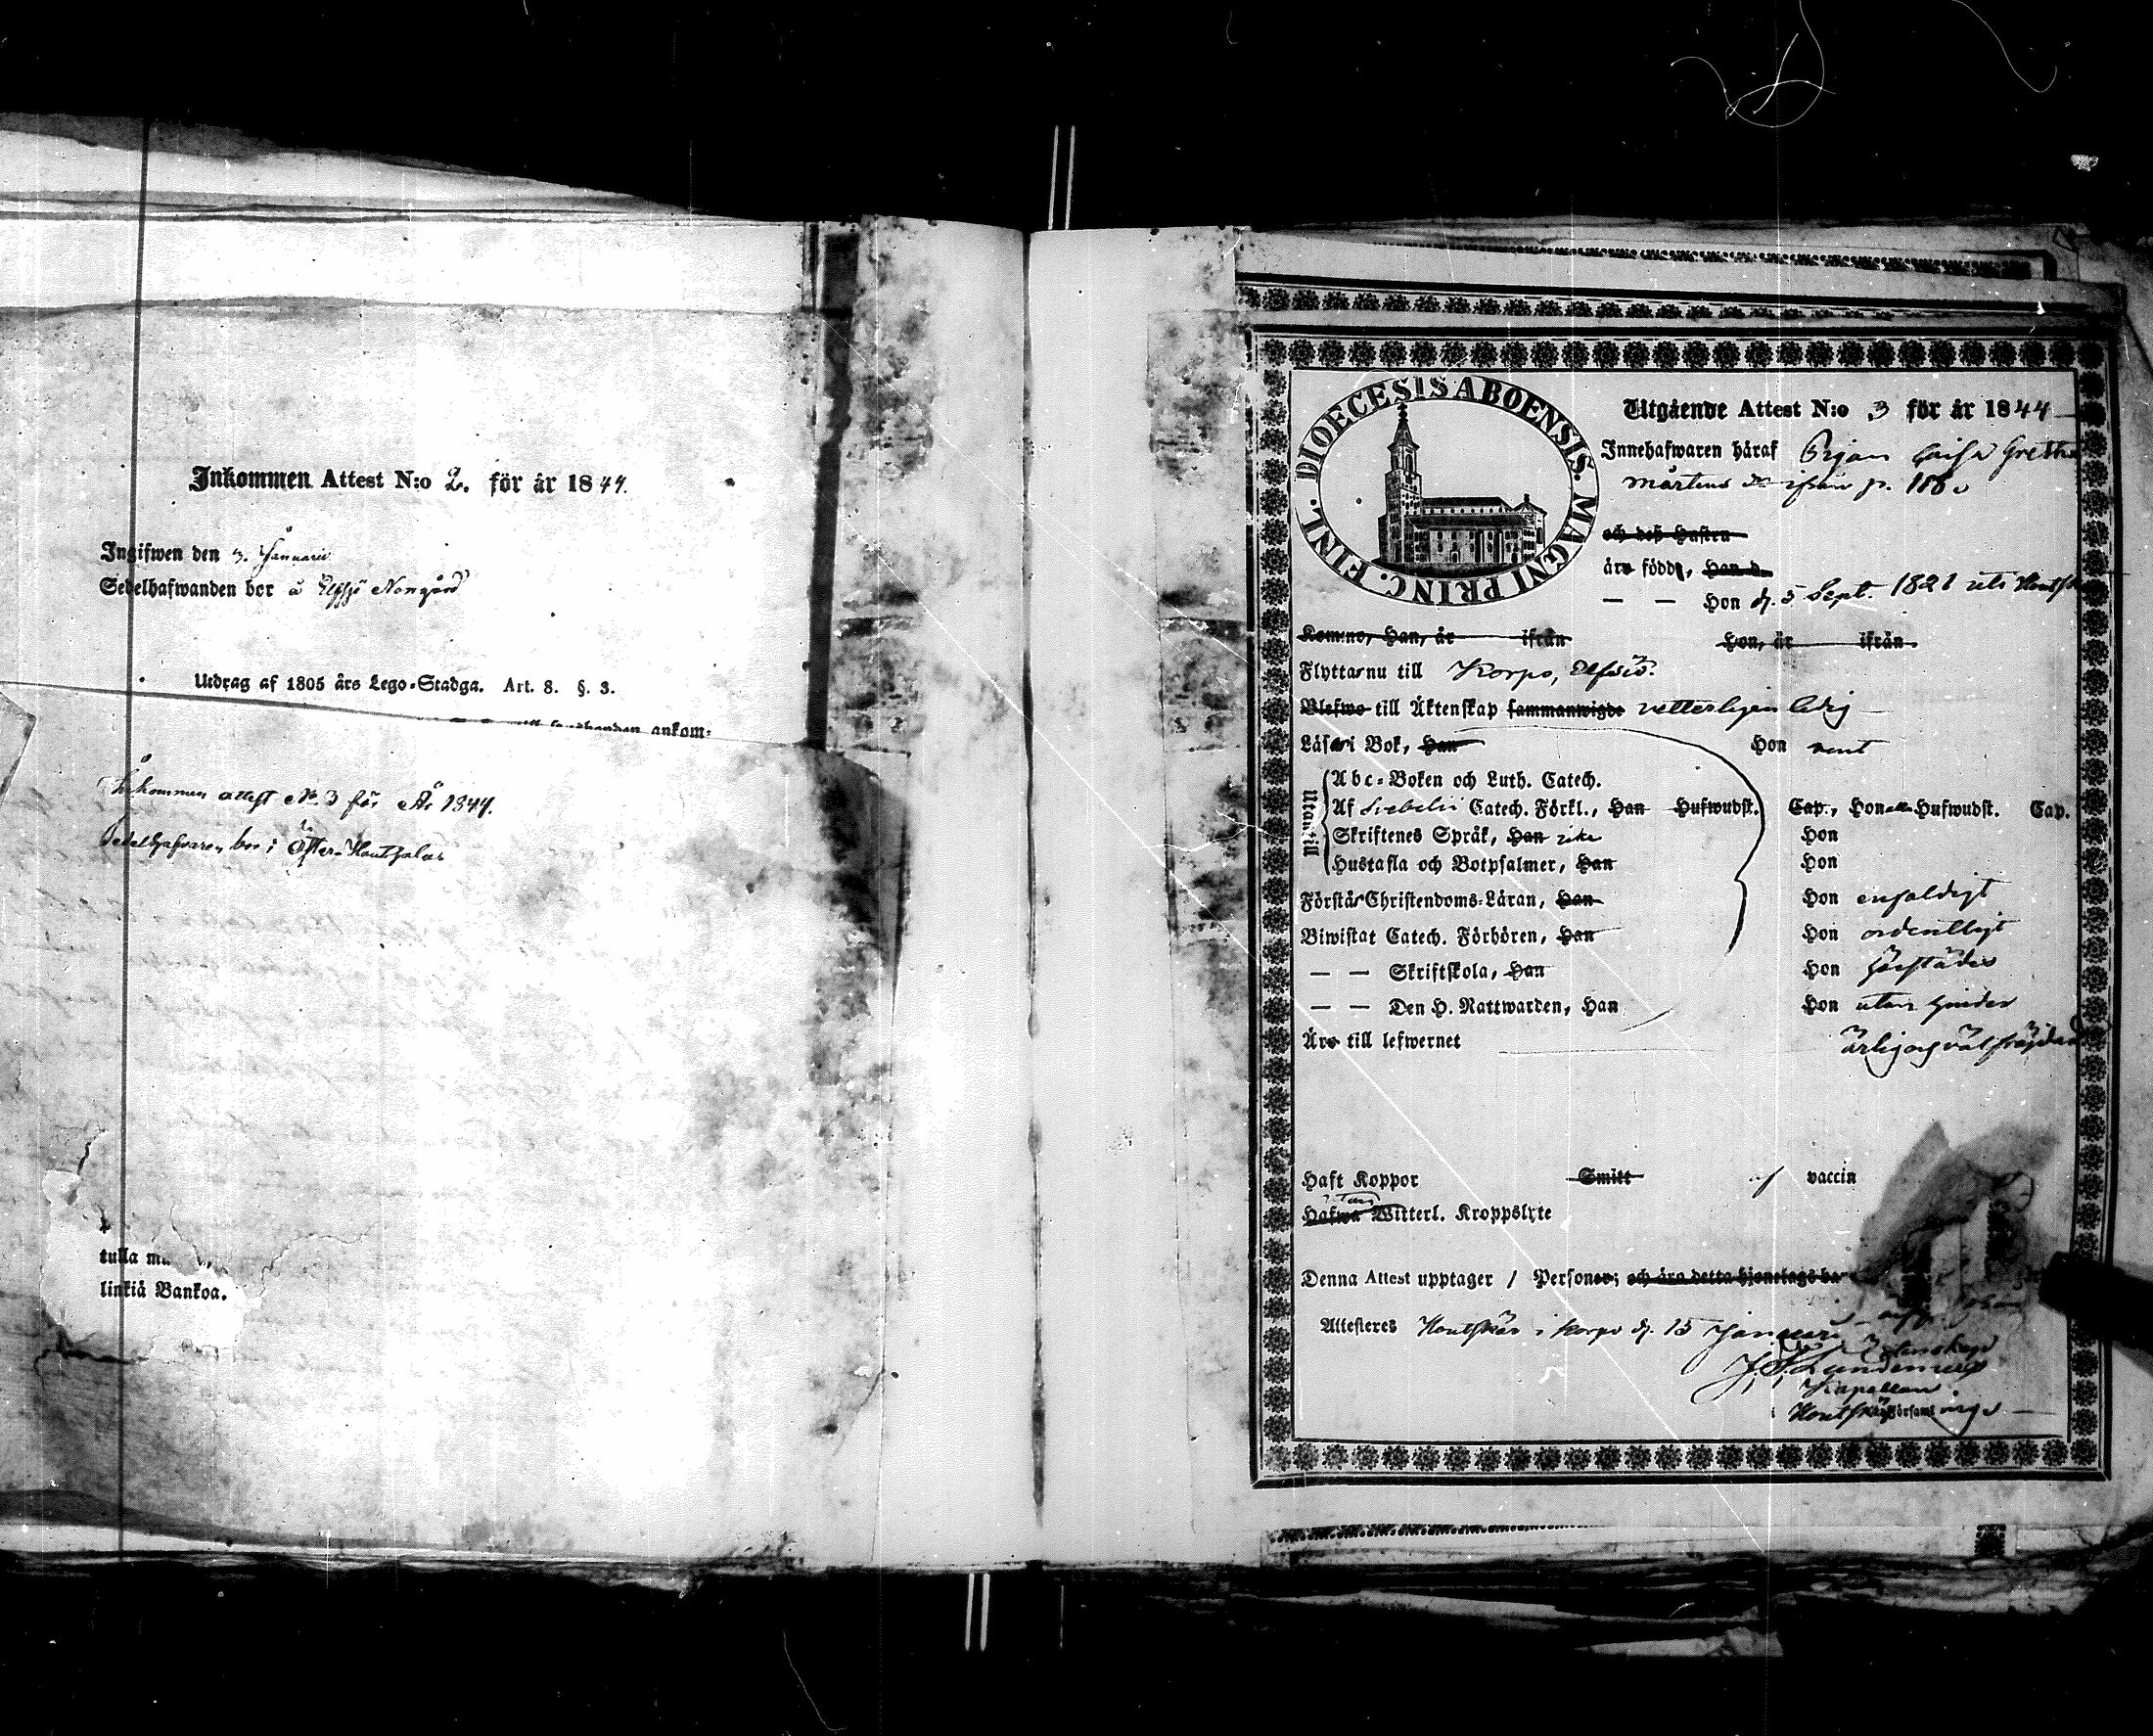 Inkommen Attest N:o 2. för år 1844.
Ingifwen den 3. Januarii
Sedelhafwanden bor å Elfsjö Norrgård
Utdrag af 1805 års Lego-Stadga. Art. 8. §. 3.
ankom-
Inkommen attest N. 3 för År 1844.
Sedelhafvaren bor i
tulla
linkiä Bankoa.
DIOECESIS ABOENSIS. MAGNI PRINC. FINL.
Utgående Attest N:o 3 för år 1844
Innehafwaren häraf Pigan Caisa Greta
Mårtens ifrån p. 180
och deß Hustru
äro födde, Han d.
— — Hon d. 5 Sept. 1821 uti
Komne, Han, år ifrån Hon, år ifrån
Flyttar nu till Korpo, Elfsiö.
Blefwo till Äktenskap sammanwigde vetterligen ledig
Läser i Bok, Han Hon rent
Utantill
Abc-Boken och Luth. Catech.
Af Svebelii Catech. Förkl., Han Hufwudst. Cap., Hon alla Hufwudst. Cap.
Skriftenes Språk, Han Hon
Hustafla och Botpsalmer, Han Hon
Förstår Christendoms-Läran, Han Hon enfaldigt
Biwistat Catech. Förhören, Han Hon ordentligt
— — Skriftskola, Han Hon härstädes
— — Den H. Nattwarden, Han Hon utan hinder
Äro till lefwernet ärlig och välfräjdad
Haft Koppor Smitt vaccin
Hafwa utan Witterl. Kroppslyte
Denna Attest upptager 1 Personer; och äro detta hjonelags
Attesteras Houtskär i Korpo d. 15 Januari
Kapellan
i Houtskärs Församl